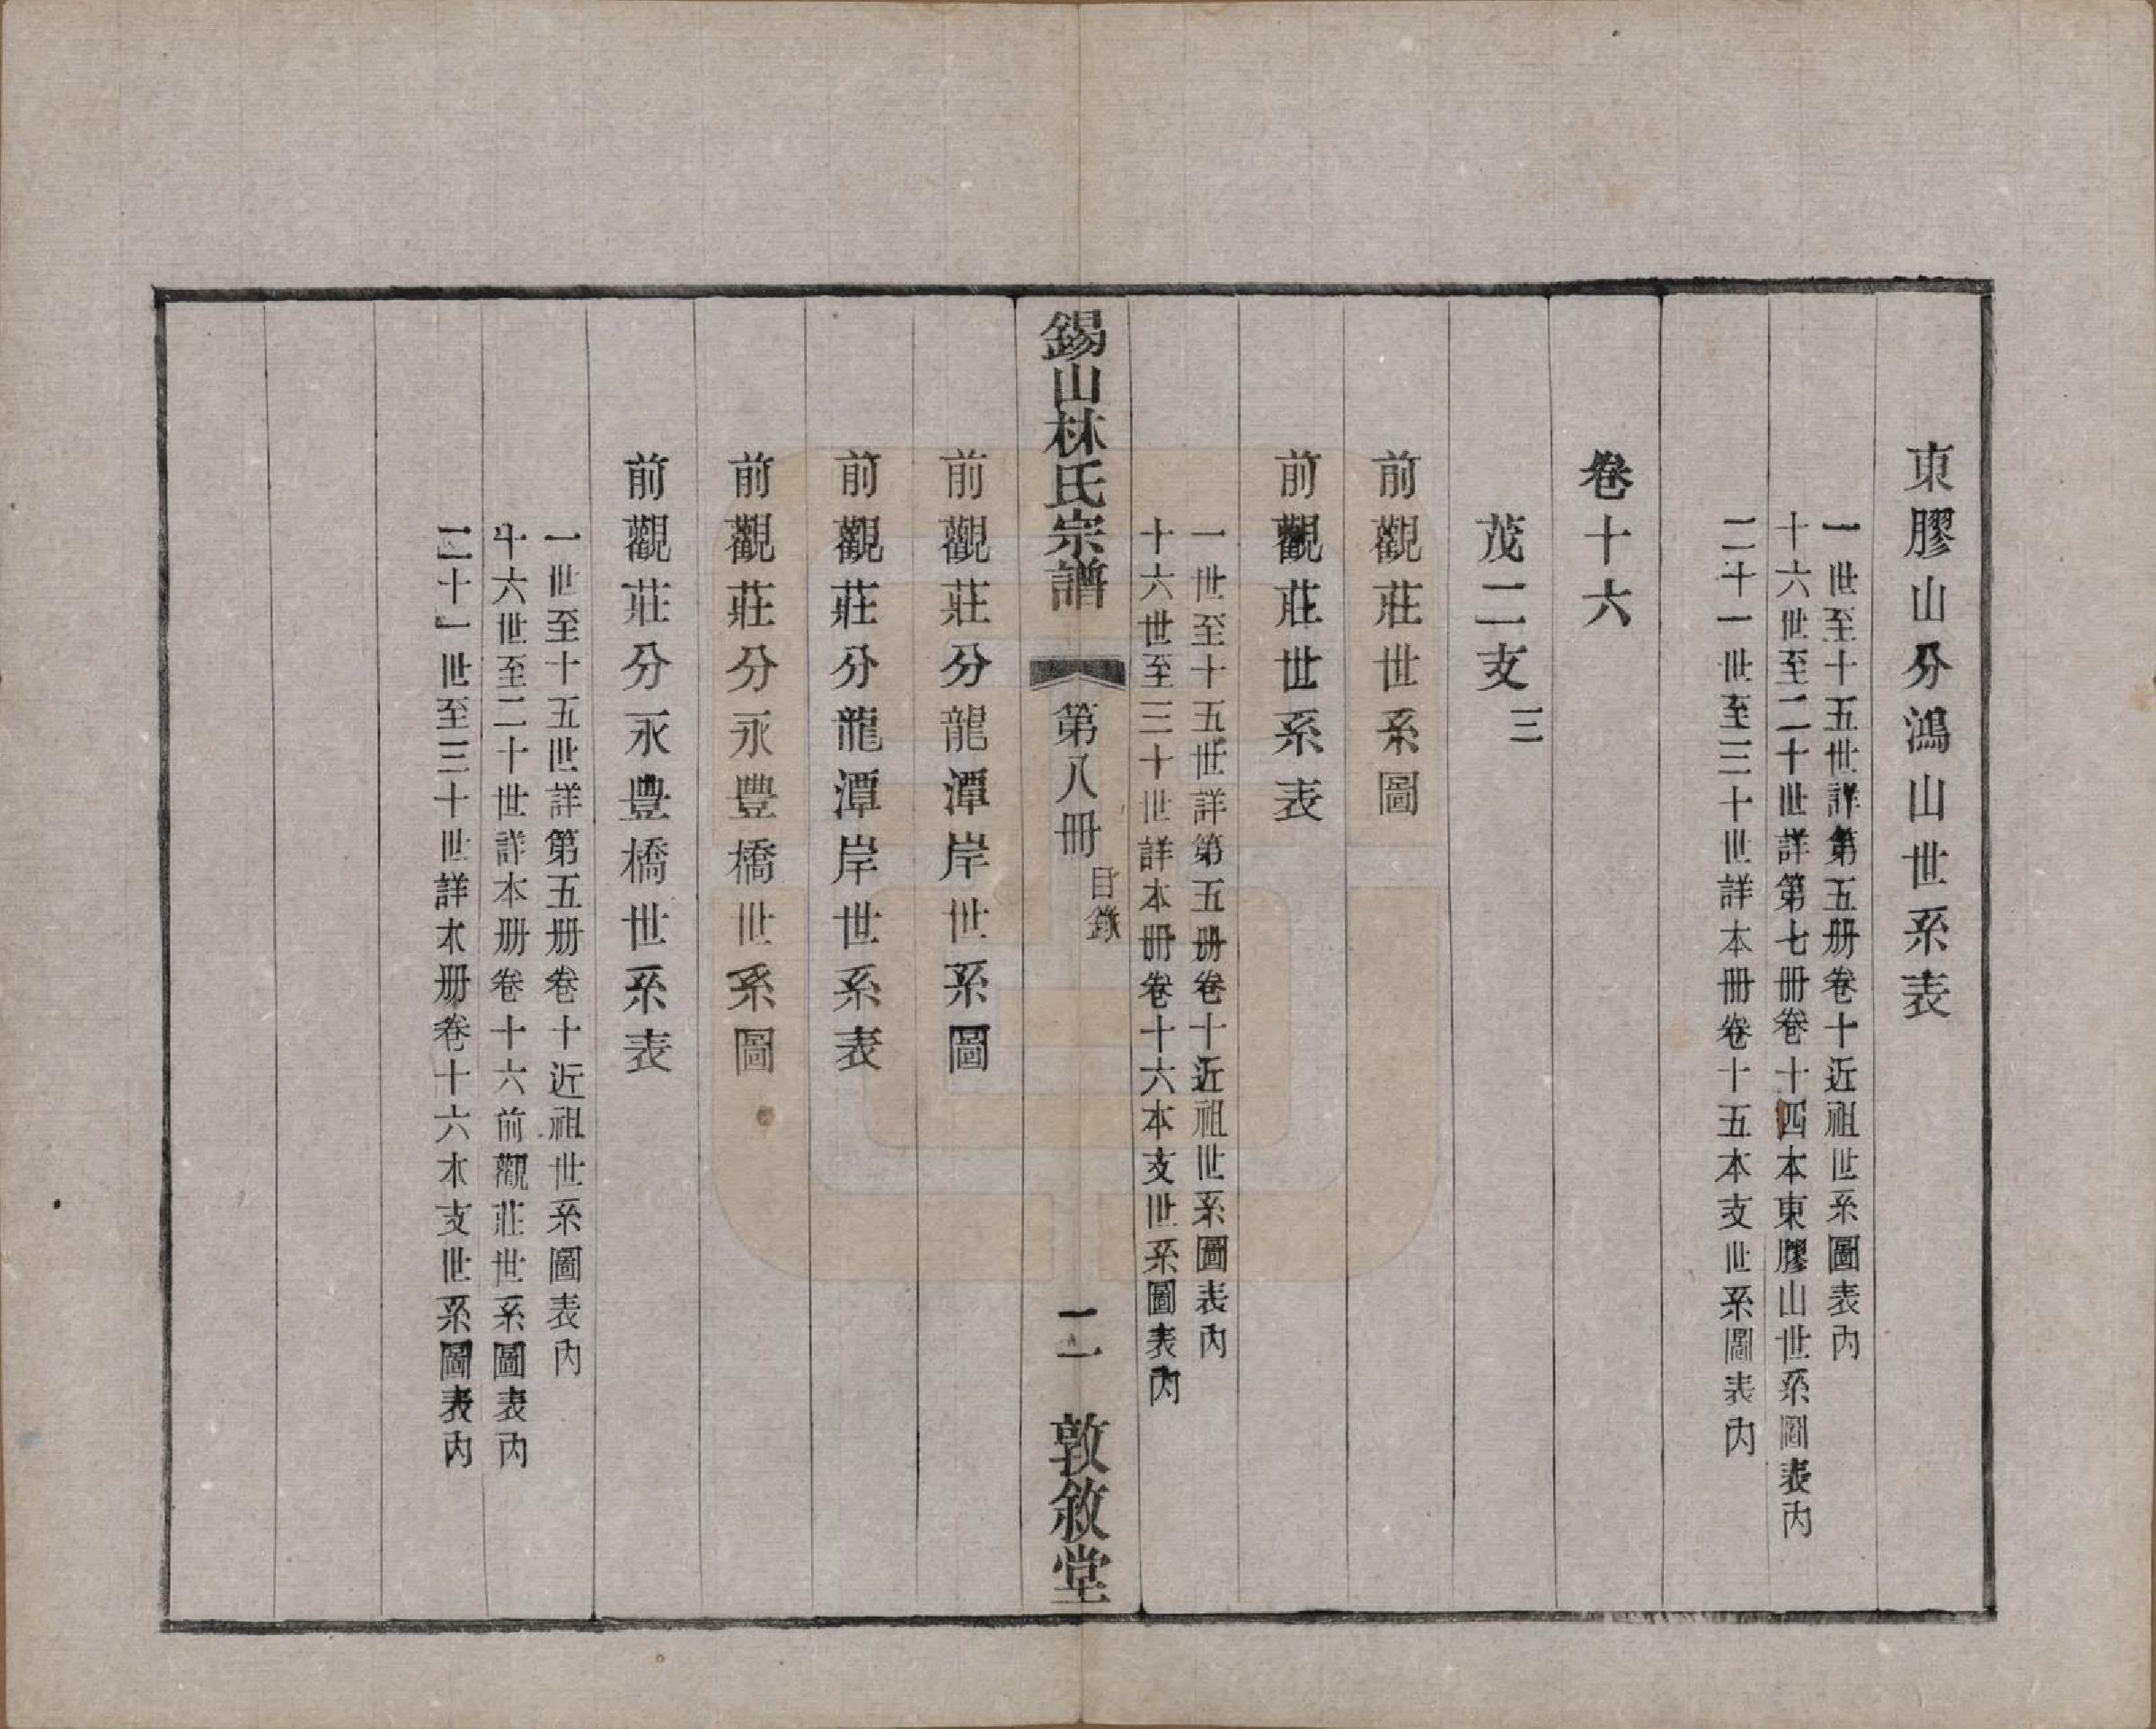 東膠山分鴻山世系表
一世至十五世詳第五册卷十近祖世系圖表內
十六世至二十世詳第七冊卷十四本東膠山世系圖表內
二十一世至三十世詳本冊卷十五本支世系圖表內
卷十六
茂二支三
前觀莊世系圖
前觀莊世系表
一世至十五世詳第五册卷十近祖世系圖表內
十六世至三十世詳本冊卷十六本支世系圖表內
錫山林氏宗譜 第八冊 目錄 二 敦敘堂
前觀莊分龍潭岸世系圖
前觀莊分龍潭岸世系表
前觀莊分永豐橋世系圖
前觀莊分永豐橋世系表
一世至十五世詳第五册卷十近祖世系圖表內
十六世至二十世詳本册卷十六前觀莊世系圖表內
二十一世至三十世詳本册卷十六本支世系圖表內